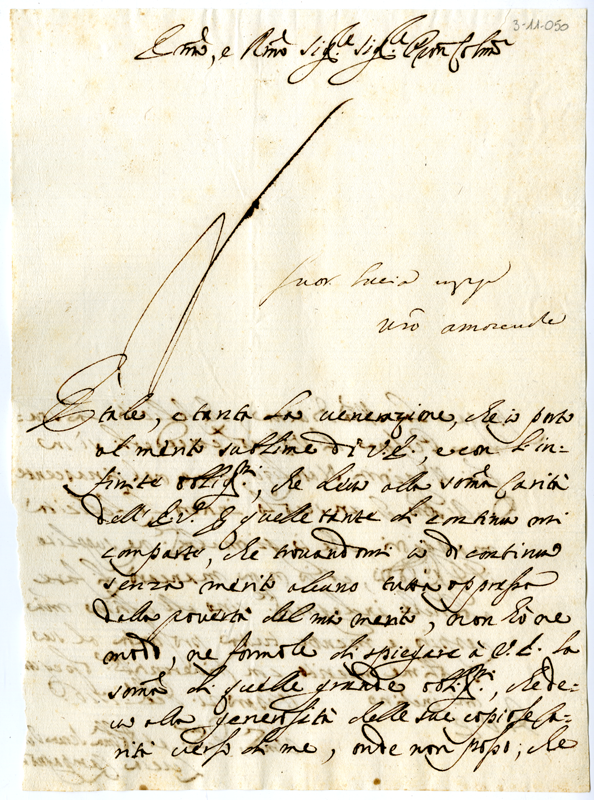 3-11-050
Em̃o, e Rm̃o Sig.re Sig.re Pron Colm̃o
Suor Lucia
vr̃o amorevole
È tale, e tanta la venerazione, che io porto
al merito sublime di V.E., e con l'in-
finite oblig.ni, che devo alla som̃a Carità
dell'E.V. p quelle tante di continuo mi
comparte, che trovandomi io di continuo
senza merito alcuno tutta oppressa
dalla povertà del mio merito, non hò ne
modo, ne formole di spiegare à V.E. la
som̃a di quelle grande oblig.ni, che de-
vo alla generosità delle sue copiose Ca-
rità verso di me, onde non posso, che